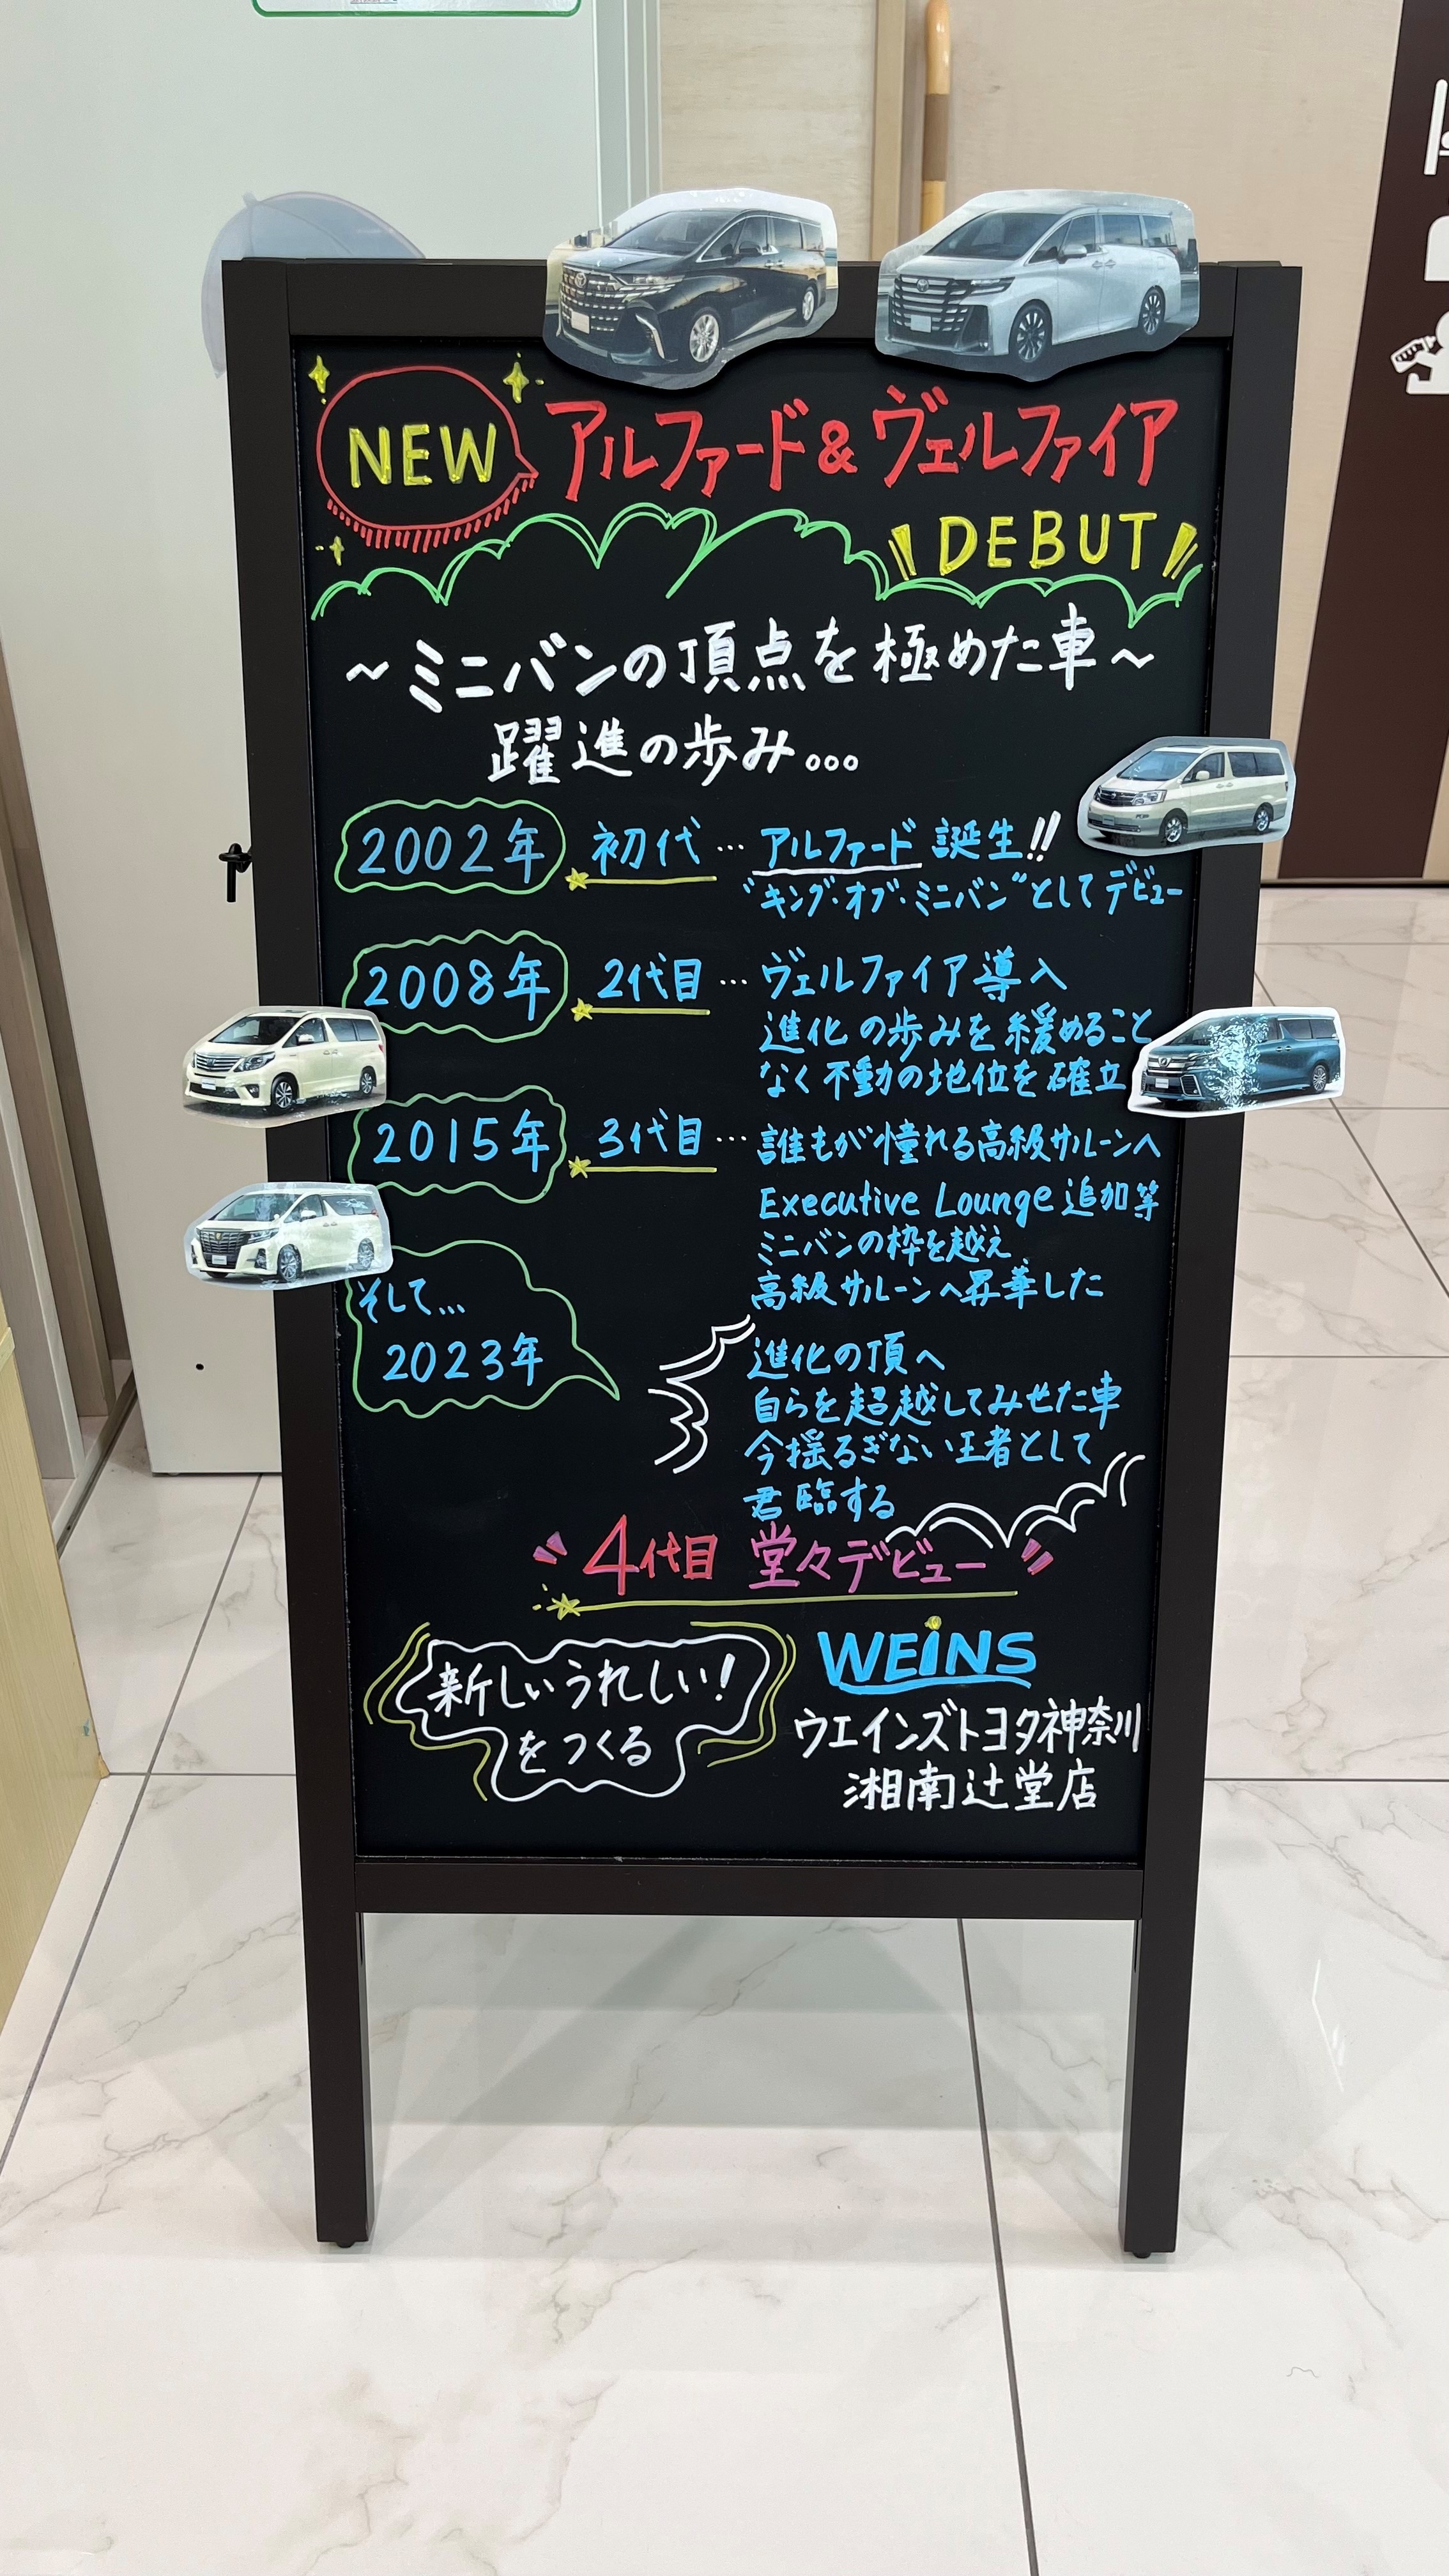 NEW アルファード&ヴェルファイア
DEBUT
~ミニバンの頂点を極めた車~
躍進の歩み...
2002年 初代 … アルファード 誕生!!
"キング・オブ・ミニバン"としてデビュー
2008年 2代目 … ヴェルファイア導入
進化の歩みを緩めること
なく不動の地位を確立
2015年 3代目 … 誰もが憧れる高級サルーンへ
Executive Lounge 追加等
ミニバンの枠を越え
高級サルーンへ昇華した
そして...
2023年
進化の頂へ
自らを超越してみせた車
今揺るぎない王者として
君臨する
4代目 堂々デビュー
新しいうれしい!
をつくる
WEiNS
ウエインズトヨタ神奈川
湘南辻堂店